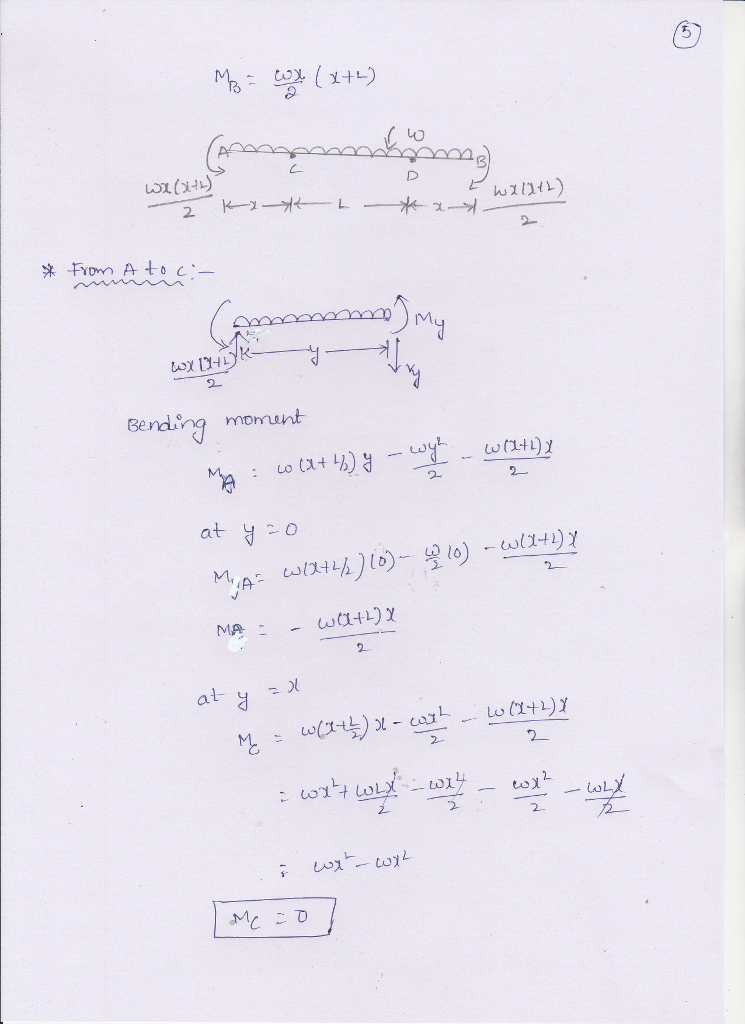 5
M_B = ωx/2 (x+L)
A C W D B
ωx(x+L)/2 x L x ωx(x+L)/2
* From A to C :-
ωx(x+L)/2 y M_y V_y
Bending moment
M_y = ω(x+L/2) y - ωy²/2 - ω(x+L)x/2
at y = 0
M_A = ω(x+L/2)(0) - ω/2 (0) - ω(x+L)x/2
M_A = - ω(x+L)x/2
at y = x
M_C = ω(x+L/2) x - ωx²/2 - ω(x+L)x/2
= ωx² + ωLx/2 - ωx²/2 - ωx²/2 - ωLx/2
= ωx² - ωx²
M_C = 0